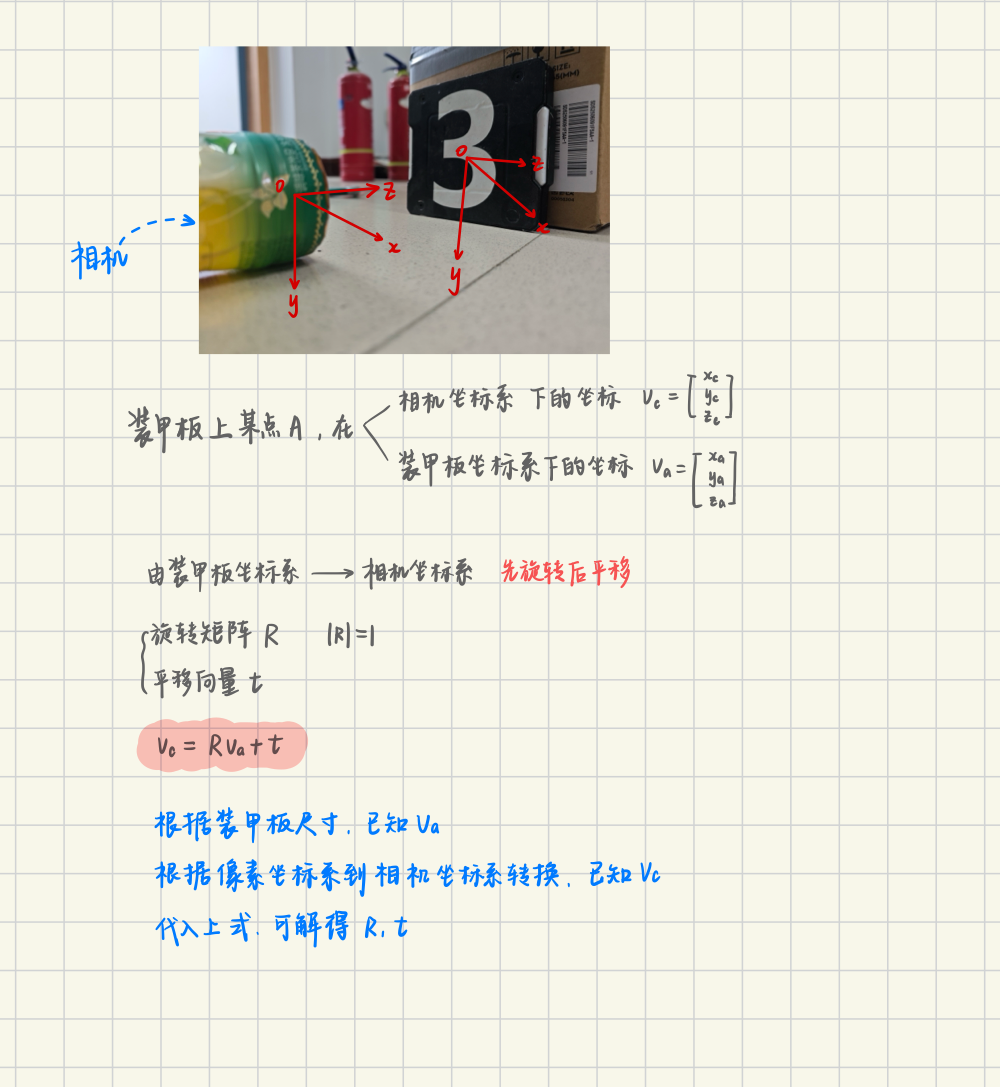 3
O
z
O
z
x
x
y
y
相机
装甲板上某点A，在
相机坐标系 下的坐标 Vc = [xc yc zc]
装甲板坐标系下的坐标 Va = [xa ya za]
由装甲板坐标系 → 相机坐标系 先旋转后平移
旋转矩阵 R |R|=1
平移向量 t
Vc = RVa + t
根据装甲板尺寸，已知 Va
根据像素坐标系到相机坐标系转换，已知 Vc
代入上式，可解得 R, t